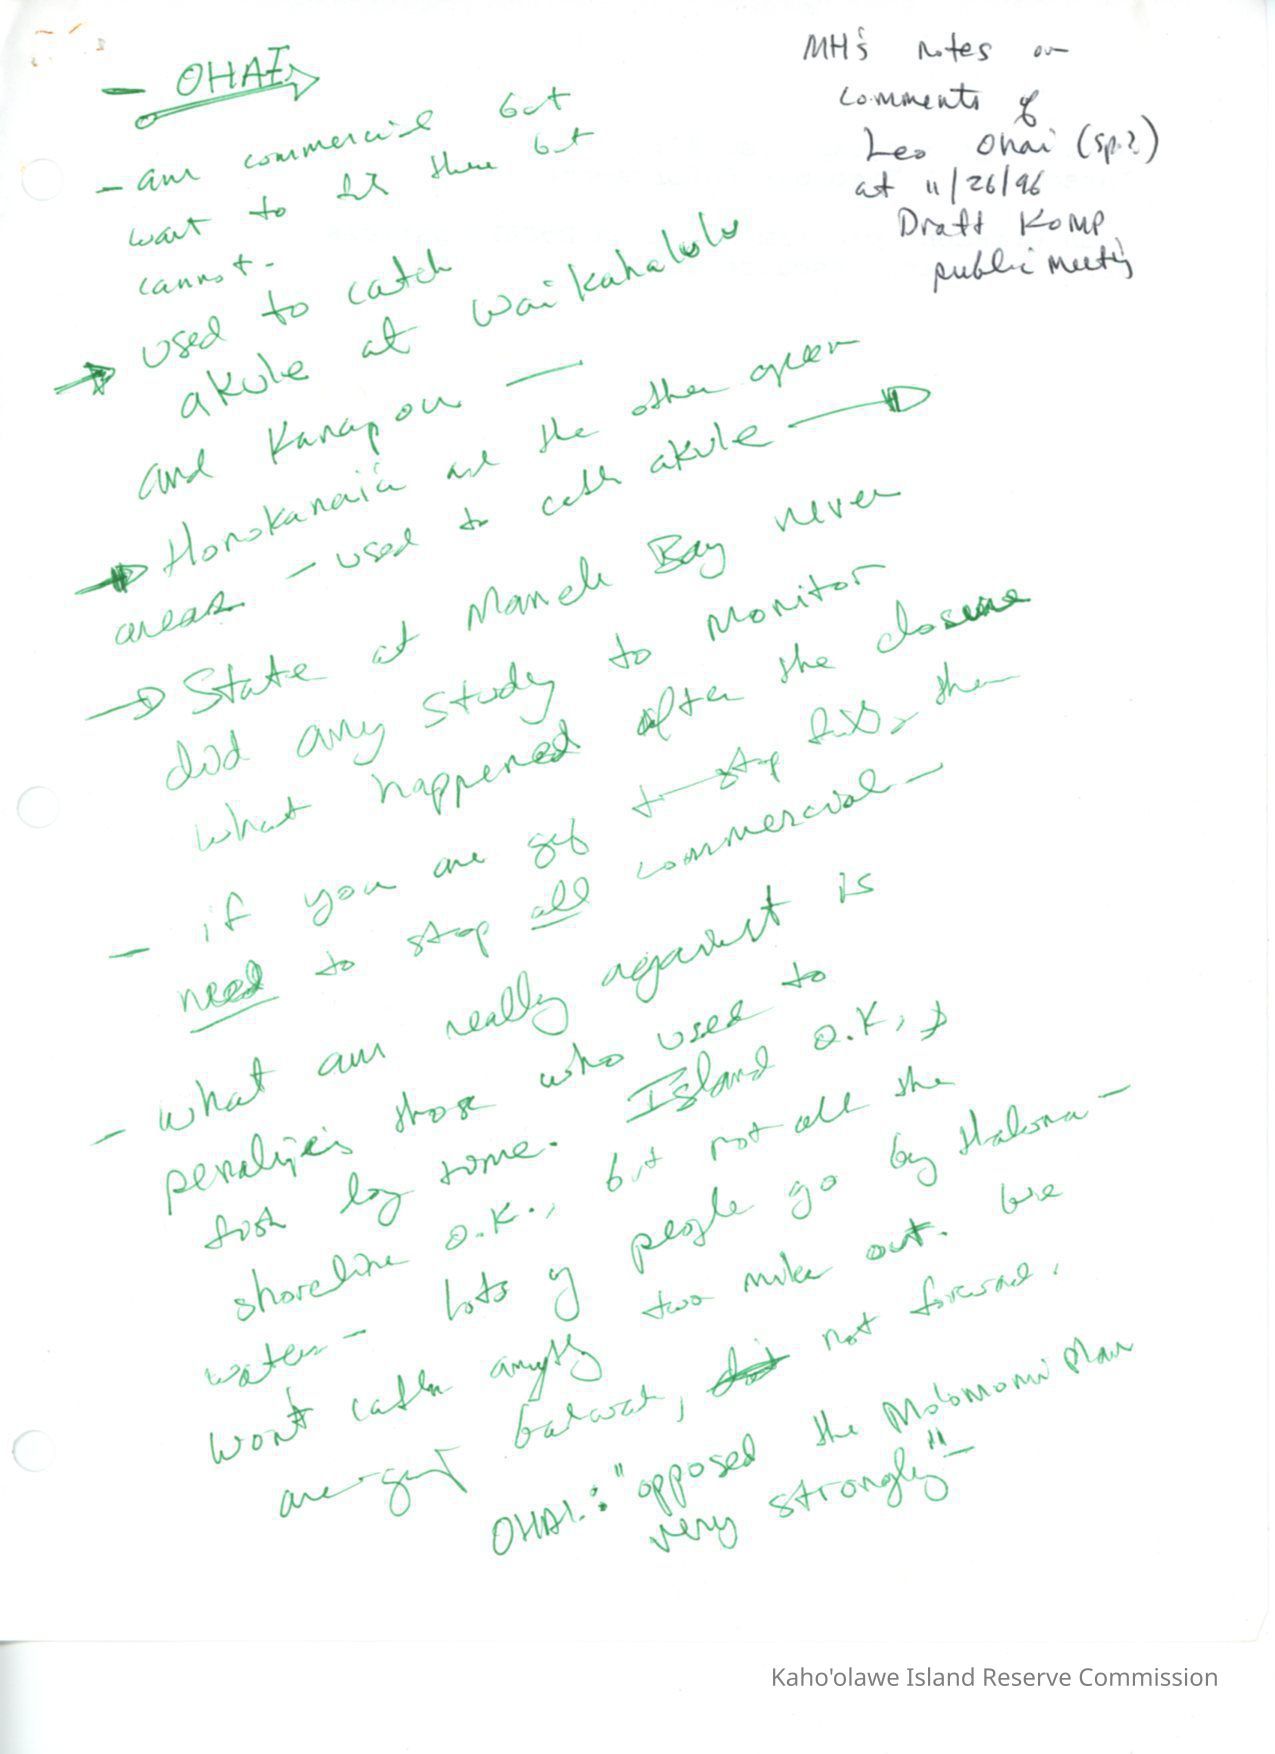 MH's notes on
comments of
Leo Ohai (sp?)
at 11/26/96
Draft KOMP
public meeting
- OHAI
- am commercial but
want to fish there but
cannot.
used to catch
akule at Waikahalulu
and Kanapou —
Honokanai'a and the other open
areas - used to catch akule
State at Manele Bay never
did any study to monitor
what happened after the closure
- if you are going to stop fish, then
need to stop all commercial -
- what am really against is
those who used to
fish by some. Island O.K.,
shoreline O.K., but not all the
waters - lots of people go by Halona -
won't catch anything two miles out. We
are going backward, not forward.
OHAI: "opposed the Molomomi plan
very strongly" -
Kaho'olawe Island Reserve Commission